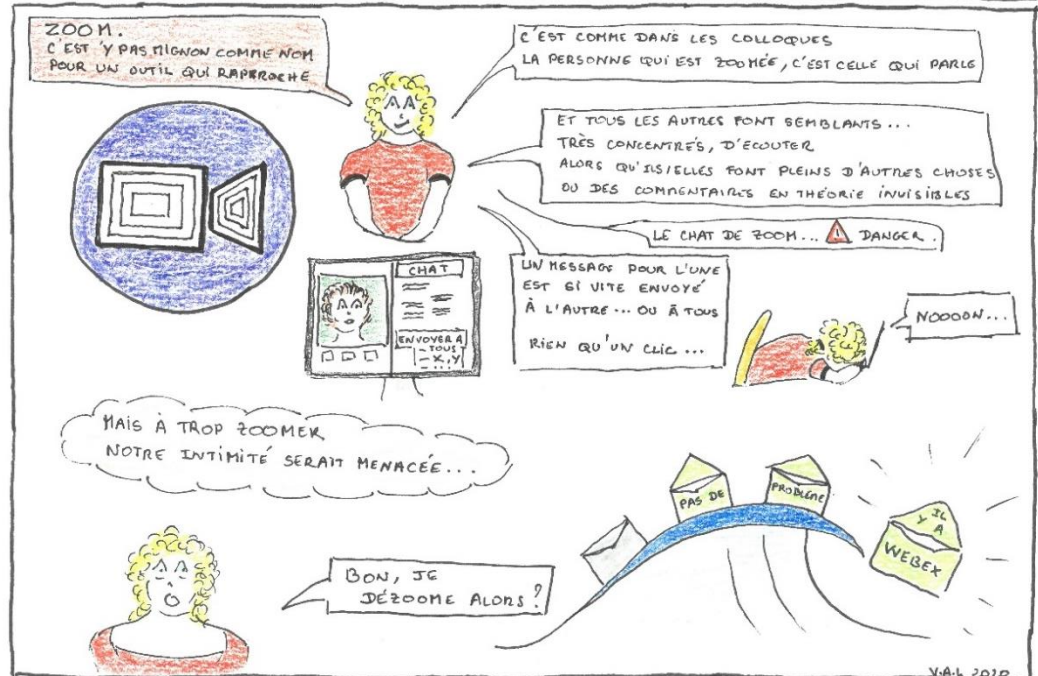 ZOOM.
C'EST 'Y PAS MIGNON COMME NOM
POUR UN OUTIL QUI RAPPROCHE
C'EST COMME DANS LES COLLOQUES
LA PERSONNE QUI EST ZOOMÉE, C'EST CELLE QUI PARLE
ET TOUS LES AUTRES FONT SEMBLANTS...
TRÈS CONCENTRÉS, D'ECOUTER
ALORS QU'ILS/ELLES FONT PLEINS D'AUTRES CHOSES
OU DES COMMENTAIRES EN THÉORIE INVISIBLES
LE CHAT DE ZOOM... ! DANGER.
UN MESSAGE POUR L'UNE
EST SI VITE ENVOYÉ
À L'AUTRE... OU À TOUS
RIEN QU'UN CLIC...
CHAT
ENVOYER À
- TOUS
- X, Y
- ...
NOOOON...
MAIS À TROP ZOOMER
NOTRE INTIMITÉ SERAIT MENACÉE...
PAS DE
PROBLÈME
Y IL A
WEBEX
BON, JE
DÉZOOME ALORS?
V.A.L 2020